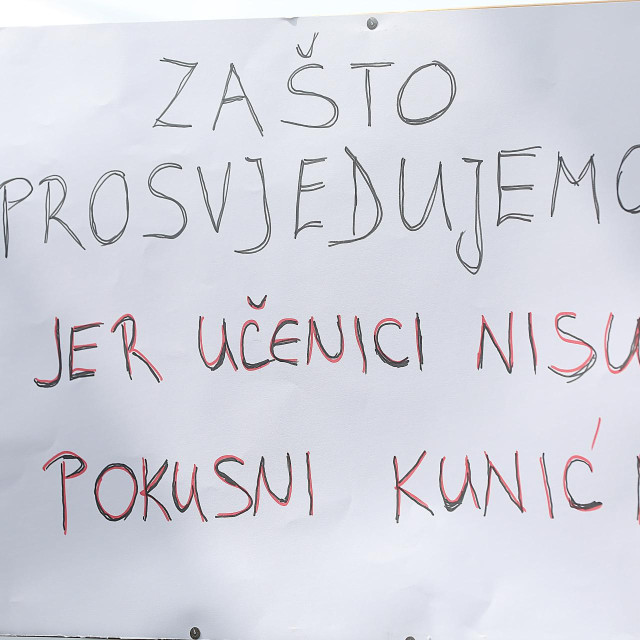 ZAŠTO
PROSVJEDUJEMO
JER UČENICI NISU
POKUSNI KUNIĆI